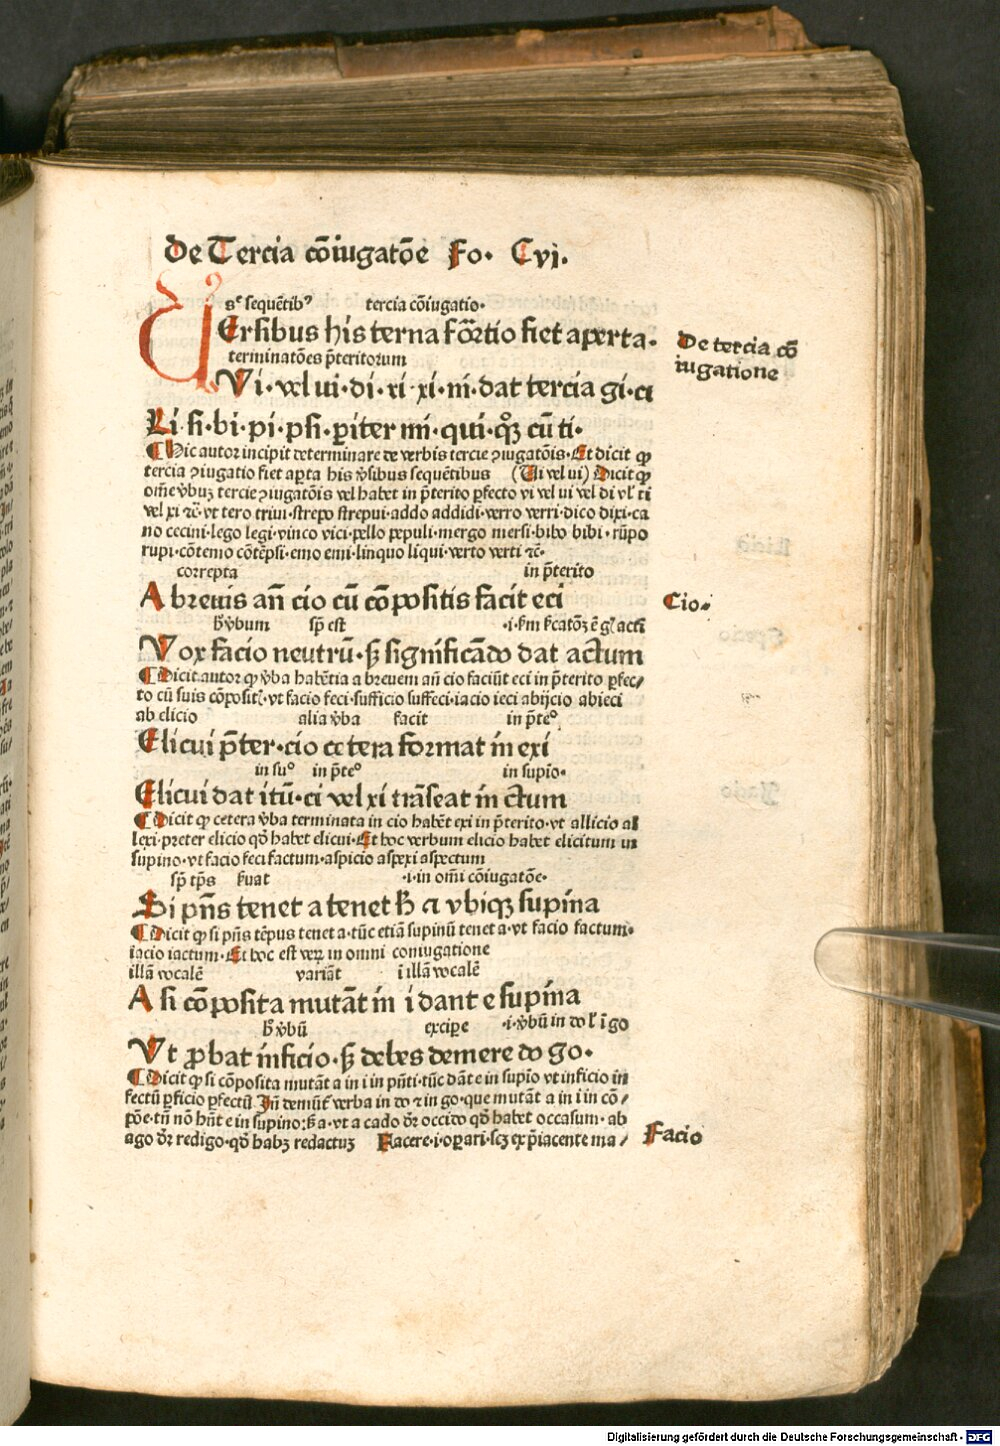 De Tercia cōiugatōe Fo. Cvi.
sᵉ sequētibꝰ tercia cōiugatio.
VErsibus his terna fōr̄tio fiet aperta.
De tercia cō
iugatione
terminatōes p̄teritorum
Vi. vel ui. di. ri. xi. ni. dat tercia gi. ci
Li. si. bi. pi. psi. pariter mi. qui. qꝫ cū ti.
¶ Hic autor incipit determinare de verbis tercie ꝯiugatōis. Et dicit ꝙ
tercia ꝯiugatio fiet aꝑta his v̓sibus sequētibus (Ui vel ui) Dicit ꝙ
om̄e v̓buꝫ tercie ꝯiugatōis vel habet in p̄terito ꝑfecto vi vel ui vel di vl̓ ti
vel xi ⁊c̄. vt tero triui. strepo strepui. addo addidi. verro verri. dico dixi. ca
no cecini. lego legi. vinco vici. pello pepuli. mergo mersi. bibo bibi. rūpo
rupi. cōtemo cōtēpsi. emo emi. linquo liqui. verto verti ⁊c̄.
correpta in p̄terito
A breuis an̄ cio cū cōpositis facit eci
Cio.
h̓ v̓bum sp̄ est
Vox facio neutrū. sꝫ significādo dat actum
¶ Dicit autor ꝙ v̓ba habētia a breuem an̄ cio faciūt eci in p̄terito ꝑfec/
to cū suis cōposit. vt facio feci. sufficio suffeci. iacio ieci abijcio abieci
ab elicio alia v̓ba facit in p̄teº
Elicui p̄ter. cio cetera format in exi
in suº in p̄teº in supīo.
Elicui dat itū. ci vel xi trāseat in ctum
¶ Dicit ꝙ cetera v̓ba terminata in cio habēt exi in p̄terito. vt allicio al
lexi. preter elicio qd̄ habet elicui. Et hoc verbum elicio habet elicitum in
supino. vt facio feci factum. aspicio aspexi aspectum
sp̄ tp̄s .i. in om̄i cōiugatōe.
Si pn̄s tenet a tenet h̓ ci vbiqꝫ supina
¶ Dicit ꝙ si pn̄s tēpus tenet a. tūc etiā supinū tenet a. vt facio factum.
iacio iactum. Et hoc est veꝝ in omni coniugatione
illā vocalē variāt i illā vocalē
A si cōposita mutāt in i dant e supina
h̓ v̓bū excipe .i. v̓bū in do l̓ ī go
Vt ꝓbat inficio. sꝫ debes demere do go.
¶ Dicit ꝙ si cōposita mutāt a in i in pn̄ti. tūc dāt e in supīo vt inficio in
fectū ꝑficio ꝑfectū Jn̄ demūt̓ verba in do ⁊ in go. que mutāt a in i in cō/
pōe. tn̄ nō hn̄t e in supino: sꝫ a. vt a cado dr̄ occido qd̄ habet occasum. ab
ago dr̄ redigo. qd̄ habꝫ redactuꝫ Facere. i. oꝑari. scꝫ ex p̄iacente ma/
Facio
Digitalisierung gefördert durch die Deutsche Forschungsgemeinschaft - DFG